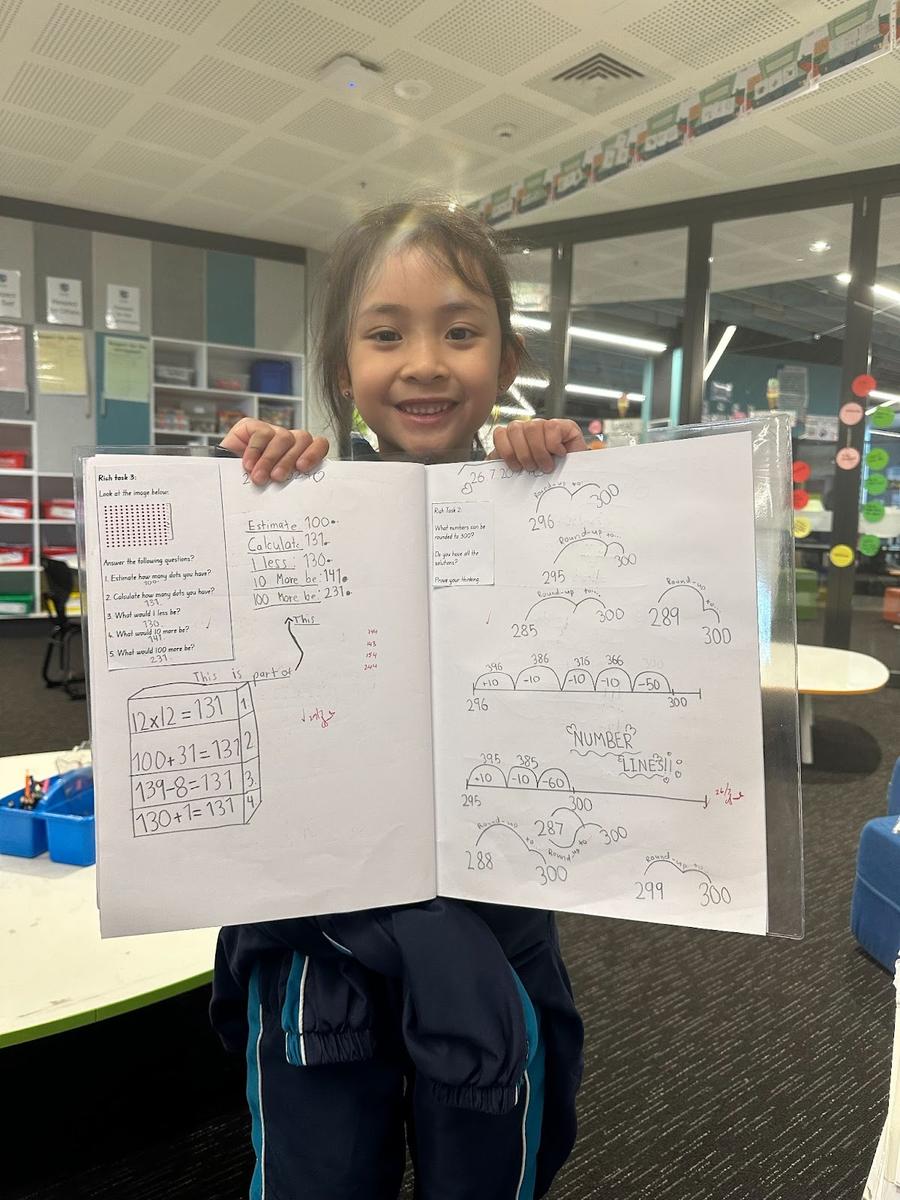 Rich task 3:
Look at the image below:
Answer the following questions?
1. Estimate how many dots you have?
100.
2. Calculate how many dots you have?
131.
3. What would 1 less be?
130.
4. What would 10 more be?
141.
5. What would 100 more be?
231.
Estimate 100.
Calculate 131.
1 less: 130.
10 More be: 141.
100 More be: 231.
This
This is part of
12x12=131 1.
100+31=131 2
139-8=131 3.
130+1=131 4
144
143
154
244
Rich Task 2:
What numbers can be
rounded to 300?
Do you have all the
solutions?
Prove your thinking.
Round-up to...
296 300
Round-up to...
295 300
Round-up to...
285 300
Round-up to...
289 300
396 386 376 366
+10 -10 -10 -10 -50
296 300
NUMBER
LINES!!
395 385
+10 -10 -60
295 300
Round-up to
288 300
287 300
Round up to
Round-up to...
299 300